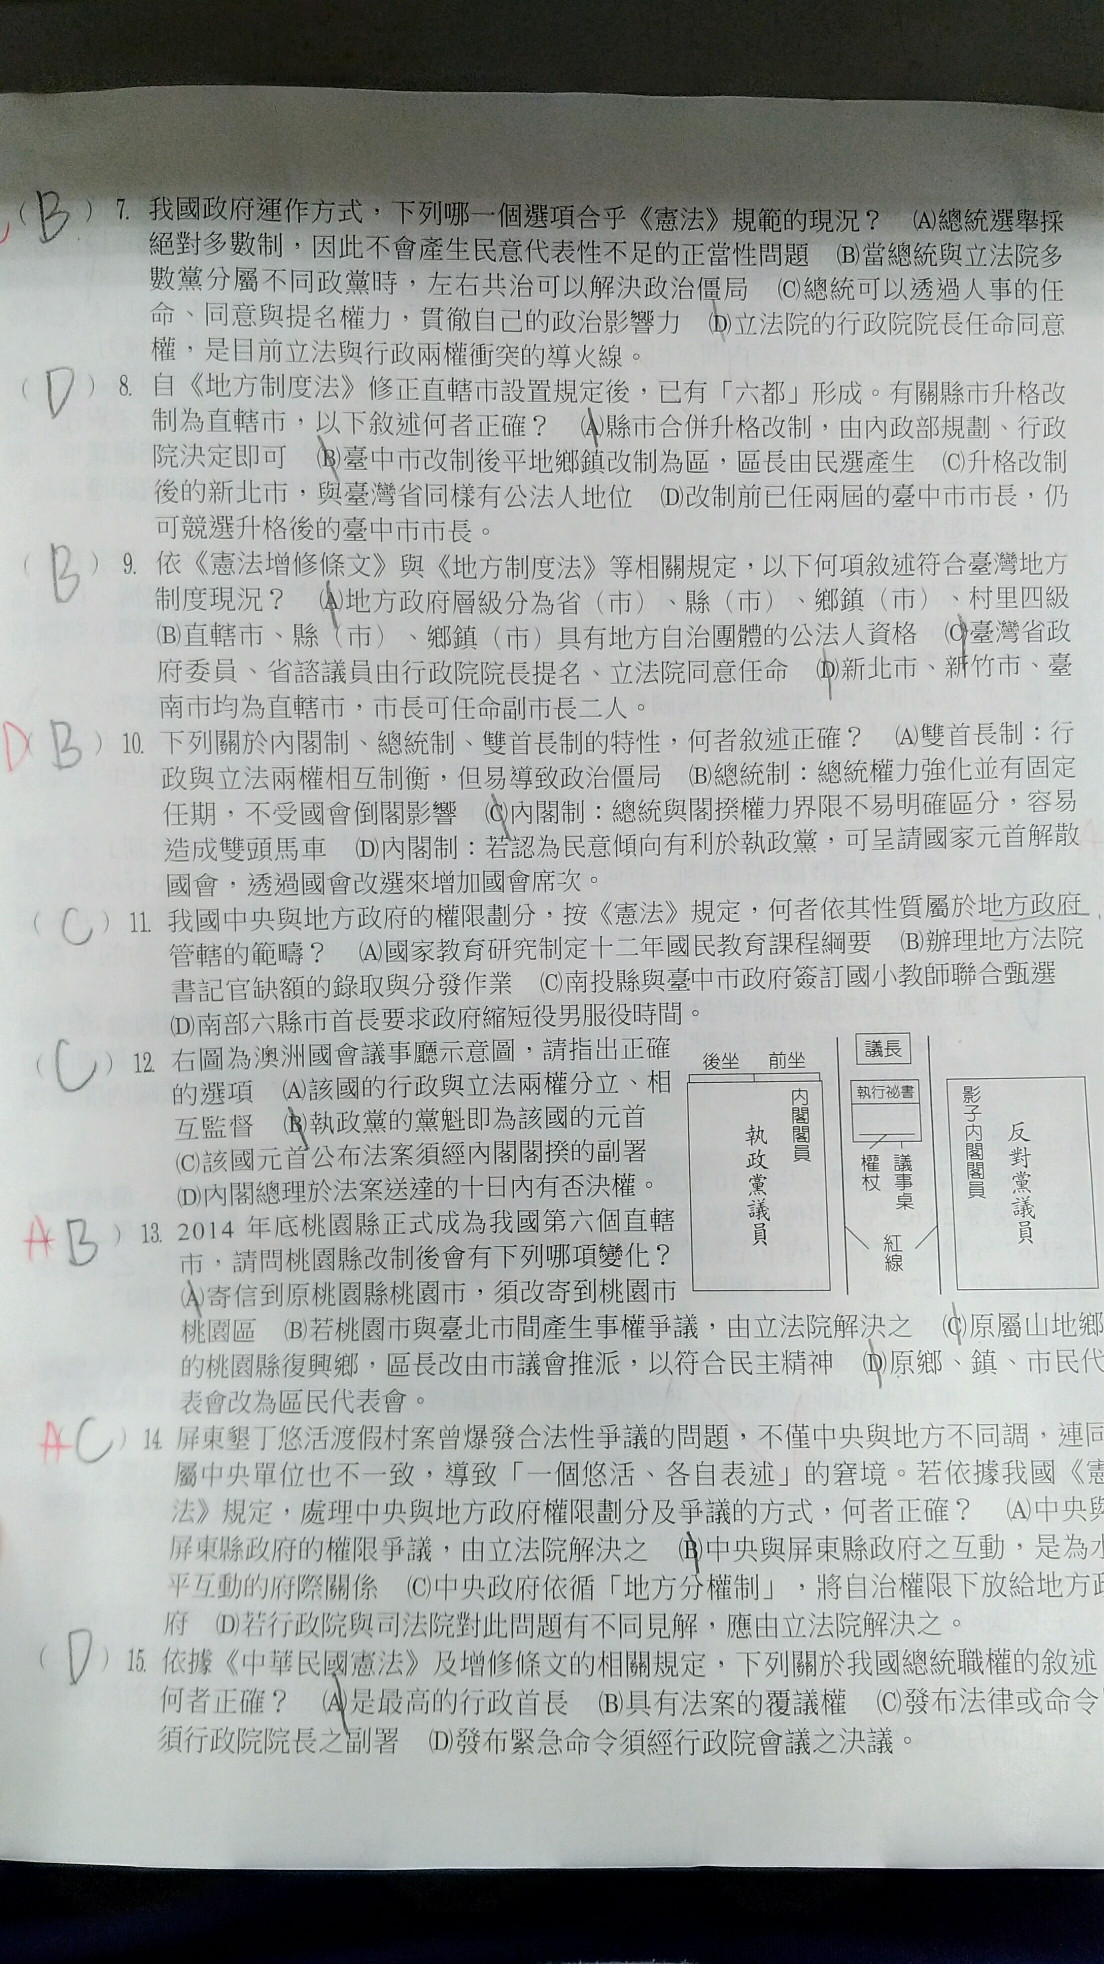 (B) 7. 我國政府運作方式，下列哪一個選項合乎《憲法》規範的現況？ (A)總統選舉採
絕對多數制，因此不會產生民意代表性不足的正當性問題 (B)當總統與立法院多
數黨分屬不同政黨時，左右共治可以解決政治僵局 (C)總統可以透過人事的任
命、同意與提名權力，貫徹自己的政治影響力 (D)立法院的行政院院長任命同意
權，是目前立法與行政兩權衝突的導火線。
(D) 8. 自《地方制度法》修正直轄市設置規定後，已有「六都」形成。有關縣市升格改
制為直轄市，以下敘述何者正確？ (A)縣市合併升格改制，由內政部規劃、行政
院決定即可 (B)臺中市改制後平地鄉鎮改制為區，區長由民選產生 (C)升格改制
後的新北市，與臺灣省同樣有公法人地位 (D)改制前已任兩屆的臺中市市長，仍
可競選升格後的臺中市市長。
(B) 9. 依《憲法增修條文》與《地方制度法》等相關規定，以下何項敘述符合臺灣地方
制度現況？ (A)地方政府層級分為省（市）、縣（市）、鄉鎮（市）、村里四級
(B)直轄市、縣（市）、鄉鎮（市）具有地方自治團體的公法人資格 (C)臺灣省政
府委員、省諮議員由行政院院長提名、立法院同意任命 (D)新北市、新竹市、臺
南市均為直轄市，市長可任命副市長二人。
D(B) 10. 下列關於內閣制、總統制、雙首長制的特性，何者敘述正確？ (A)雙首長制：行
政與立法兩權相互制衡，但易導致政治僵局 (B)總統制：總統權力強化並有固定
任期，不受國會倒閣影響 (C)內閣制：總統與閣揆權力界限不易明確區分，容易
造成雙頭馬車 (D)內閣制：若認為民意傾向有利於執政黨，可呈請國家元首解散
國會，透過國會改選來增加國會席次。
(C) 11. 我國中央與地方政府的權限劃分，按《憲法》規定，何者依其性質屬於地方政府
管轄的範疇？ (A)國家教育研究制定十二年國民教育課程綱要 (B)辦理地方法院
書記官缺額的錄取與分發作業 (C)南投縣與臺中市政府簽訂國小教師聯合甄選
(D)南部六縣市首長要求政府縮短役男服役時間。
(C) 12. 右圖為澳洲國會議事廳示意圖，請指出正確
的選項 (A)該國的行政與立法兩權分立、相
互監督 (B)執政黨的黨魁即為該國的元首
(C)該國元首公布法案須經內閣閣揆的副署
(D)內閣總理於法案送達的十日內有否決權。
後坐 前坐
內閣閣員
執政黨議員
議長
執行祕書
權杖
議事桌
紅線
影子內閣閣員
反對黨議員
A(B) 13. 2014 年底桃園縣正式成為我國第六個直轄
市，請問桃園縣改制後會有下列哪項變化？
(A)寄信到原桃園縣桃園市，須改寄到桃園市
桃園區 (B)若桃園市與臺北市間產生事權爭議，由立法院解決之 (C)原屬山地鄉
的桃園縣復興鄉，區長改由市議會推派，以符合民主精神 (D)原鄉、鎮、市民代
表會改為區民代表會。
A(C) 14. 屏東墾丁悠活渡假村案曾爆發合法性爭議的問題，不僅中央與地方不同調，連同
屬中央單位也不一致，導致「一個悠活、各自表述」的窘境。若依據我國《憲
法》規定，處理中央與地方政府權限劃分及爭議的方式，何者正確？ (A)中央與
屏東縣政府的權限爭議，由立法院解決之 (B)中央與屏東縣政府之互動，是為水
平互動的府際關係 (C)中央政府依循「地方分權制」，將自治權限下放給地方政
府 (D)若行政院與司法院對此問題有不同見解，應由立法院解決之。
(D) 15. 依據《中華民國憲法》及增修條文的相關規定，下列關於我國總統職權的敘述
何者正確？ (A)是最高的行政首長 (B)具有法案的覆議權 (C)發布法律或命令
須行政院院長之副署 (D)發布緊急命令須經行政院會議之決議。